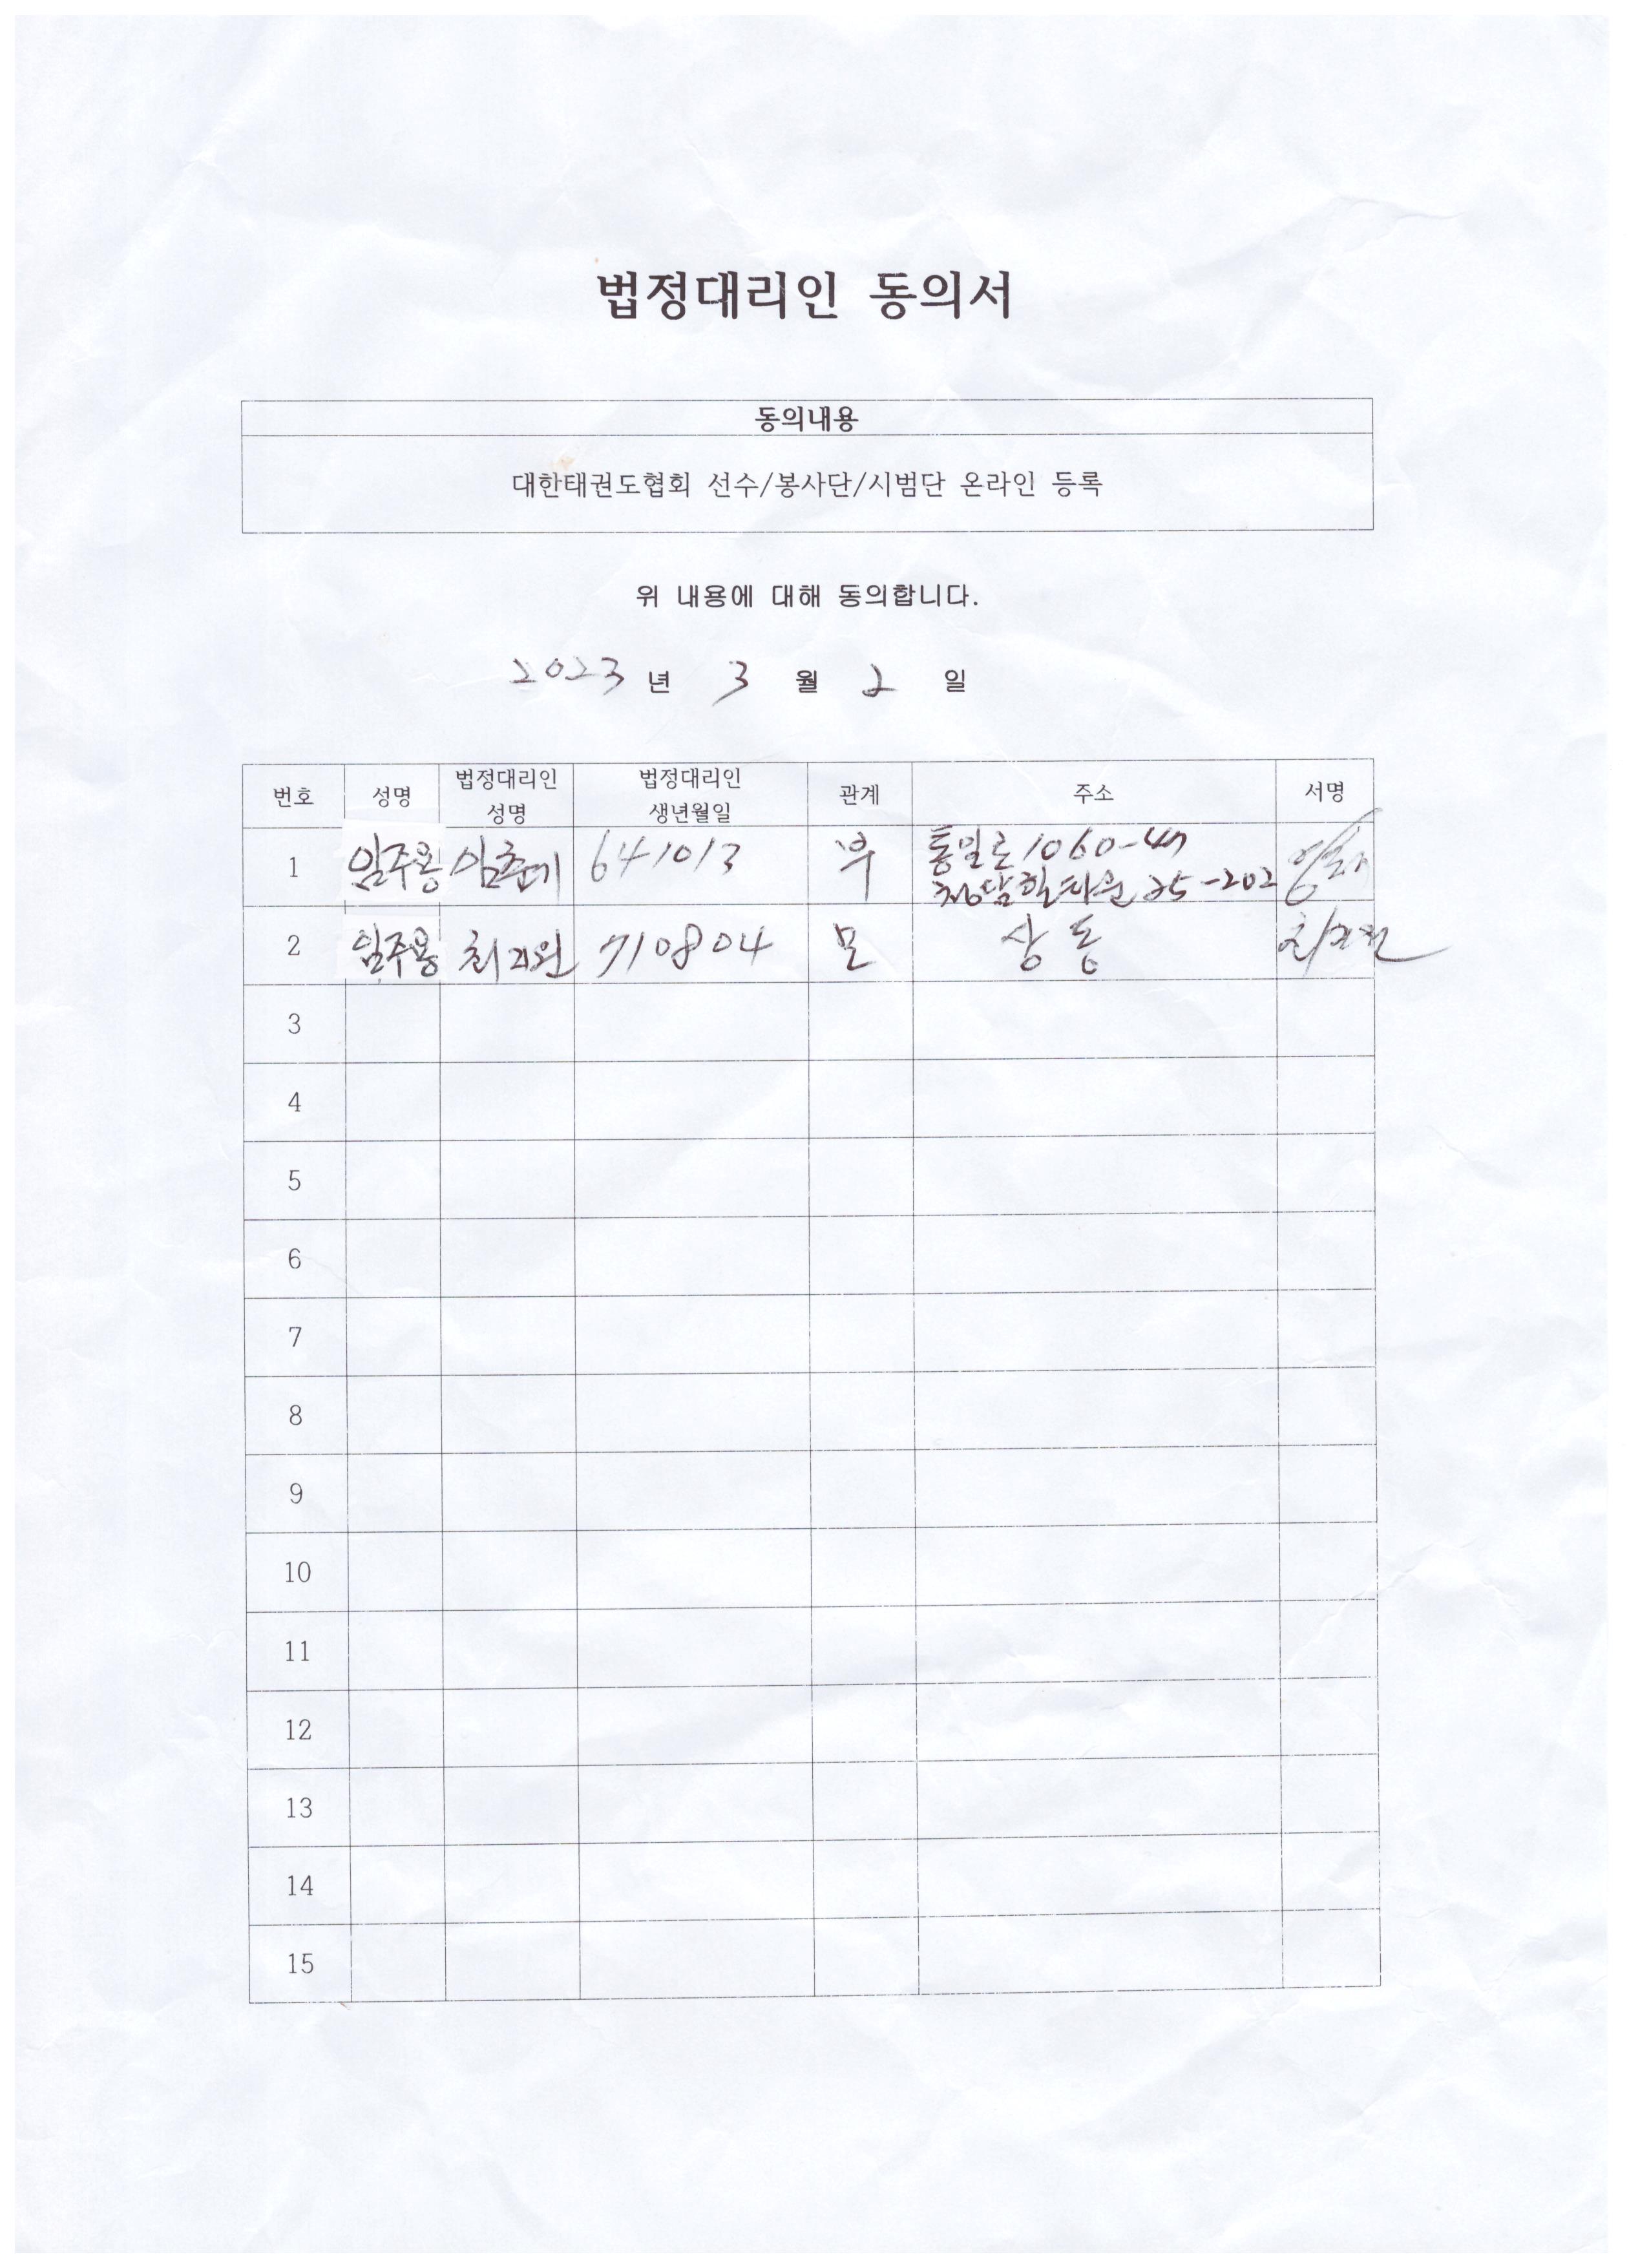 법정대리인 동의서
동의내용
대한태권도협회 선수/봉사단/시범단 온라인 등록
위 내용에 대해 동의합니다.
2023 년 3 월 2 일
번호 성명 법정대리인 성명 법정대리인 생년월일 관계 주소 서명
1 임주용 641013 부 통일로 1060-
청담힐타운 25-202
2 임주용 최지원 710804 모 상동 최지원
3
4
5
6
7
8
9
10
11
12
13
14
15